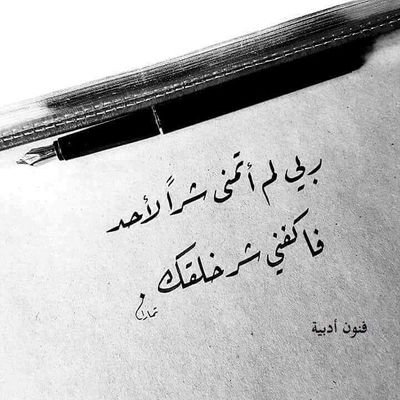 ربي لم أتمنى شراً لأحد
فاكفني شر خلقك
فنون أدبية